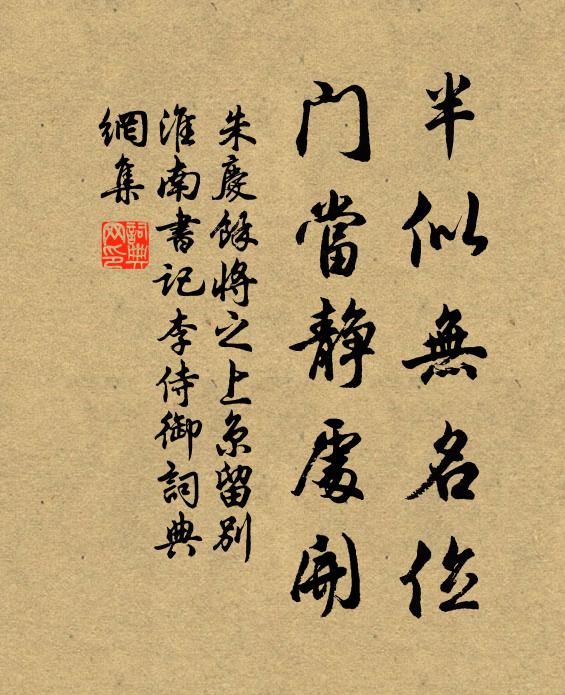 半似無名位
門當静處開
朱慶餘將之上京留別
淮南書記李侍御詞典
網集
詞典
网印